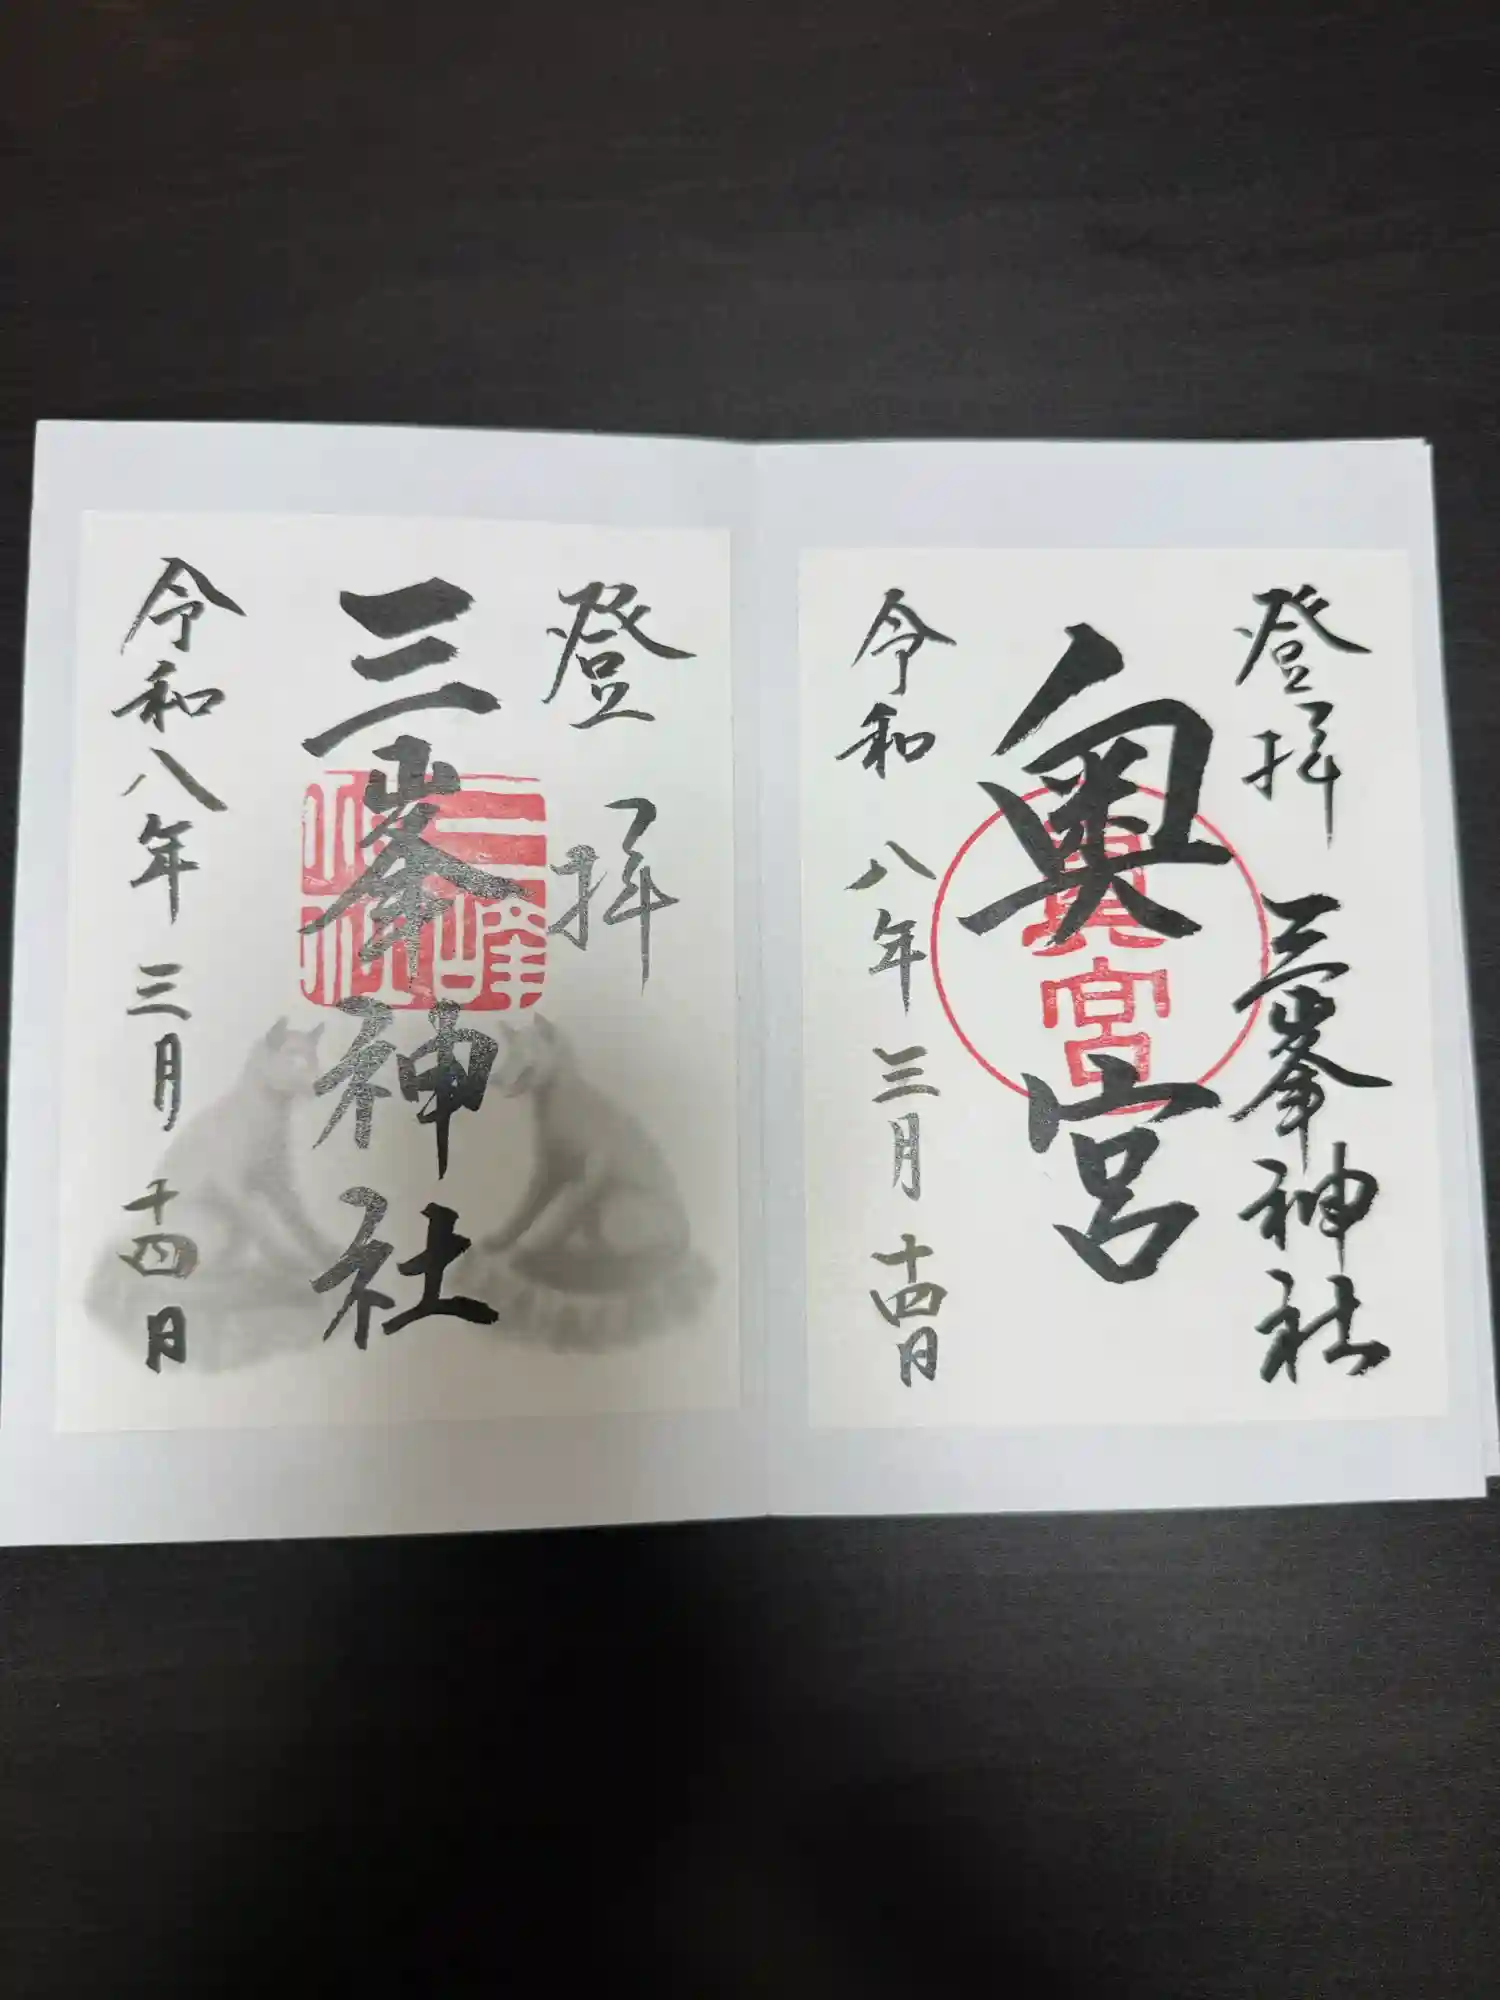 登拝 三峯神社
奥宮
奥宮
令和八年三月十四日
登拝
三峯神社
令和八年三月十四日